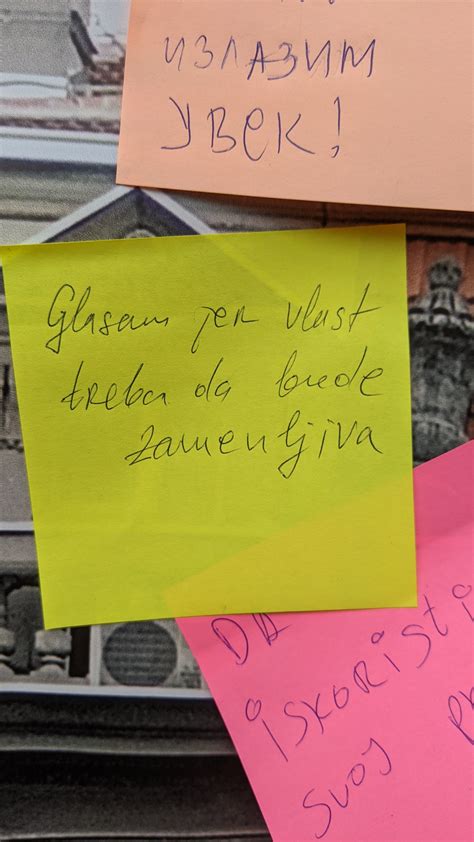 излазим
увек!
Glasam jer vlast
treba da bude
zamenljiva
DA
iskoristi
svoj